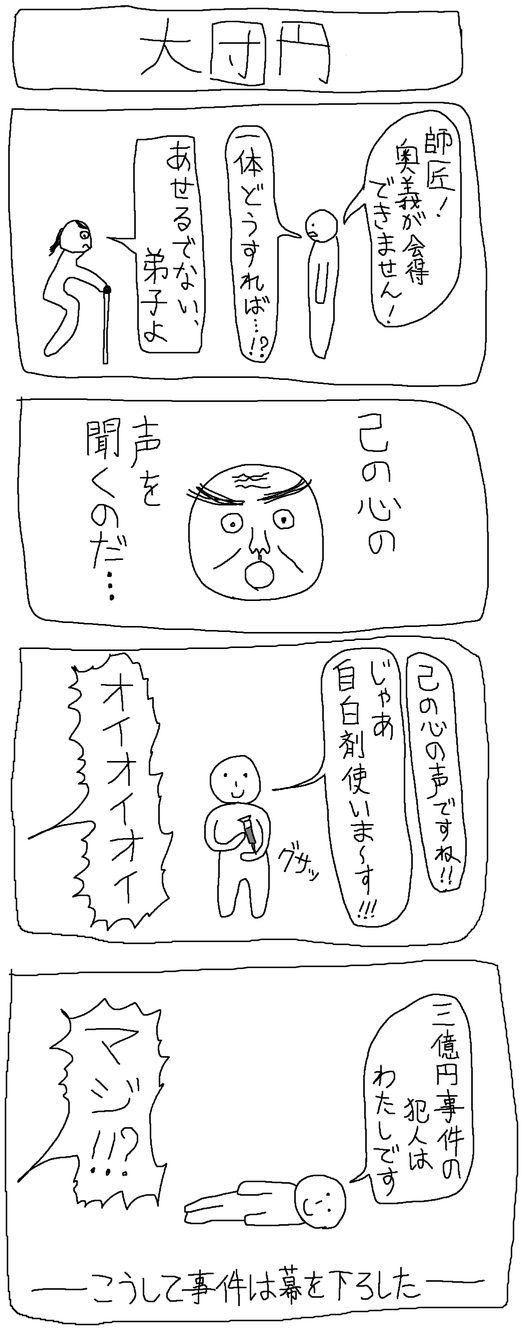 大団円
師匠！
奥義が会得
できません！
一体どうすれば…!?
あせるでない、
弟子よ
己の心の
声を
聞くのだ…
己の心の声ですね!!
じゃあ
自白剤使いま〜す!!!
グサッ
オイオイオイ
三億円事件の
犯人は
わたしです
マジ!!?
──こうして事件は幕を下ろした──